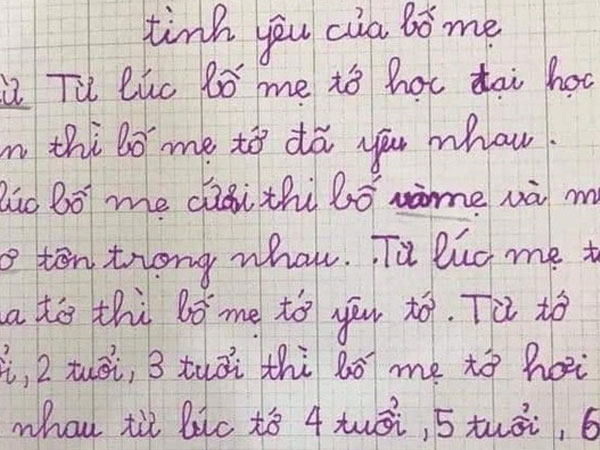 tình yêu của bố mẹ
Từ lúc bố mẹ tớ học đại học
thì bố mẹ tớ đã yêu nhau.
lúc bố mẹ cưới thì bố và mẹ và
tôn trọng nhau. Từ lúc mẹ
tớ thì bố mẹ tớ yêu tớ. Từ tớ
2 tuổi, 3 tuổi thì bố mẹ tớ hơi
nhau từ lúc tớ 4 tuổi, 5 tuổi, 6